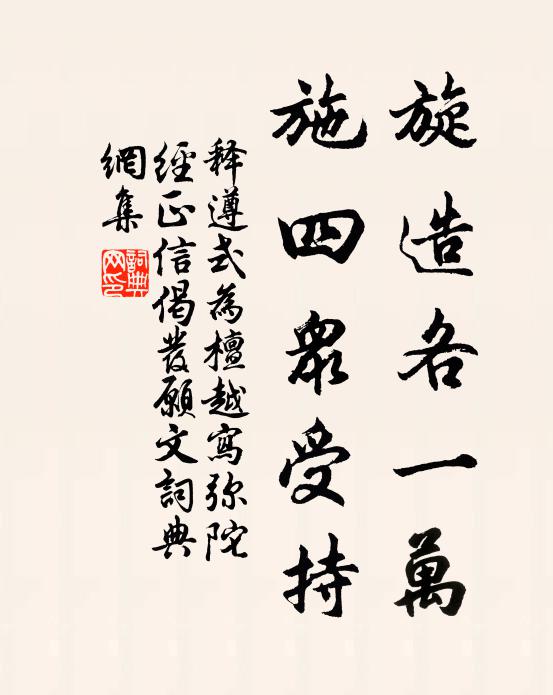 旋造各一萬
施四眾受持
释遵式為檀越寫弥陀
經正信偈發願文詞典
網集
詞典網印